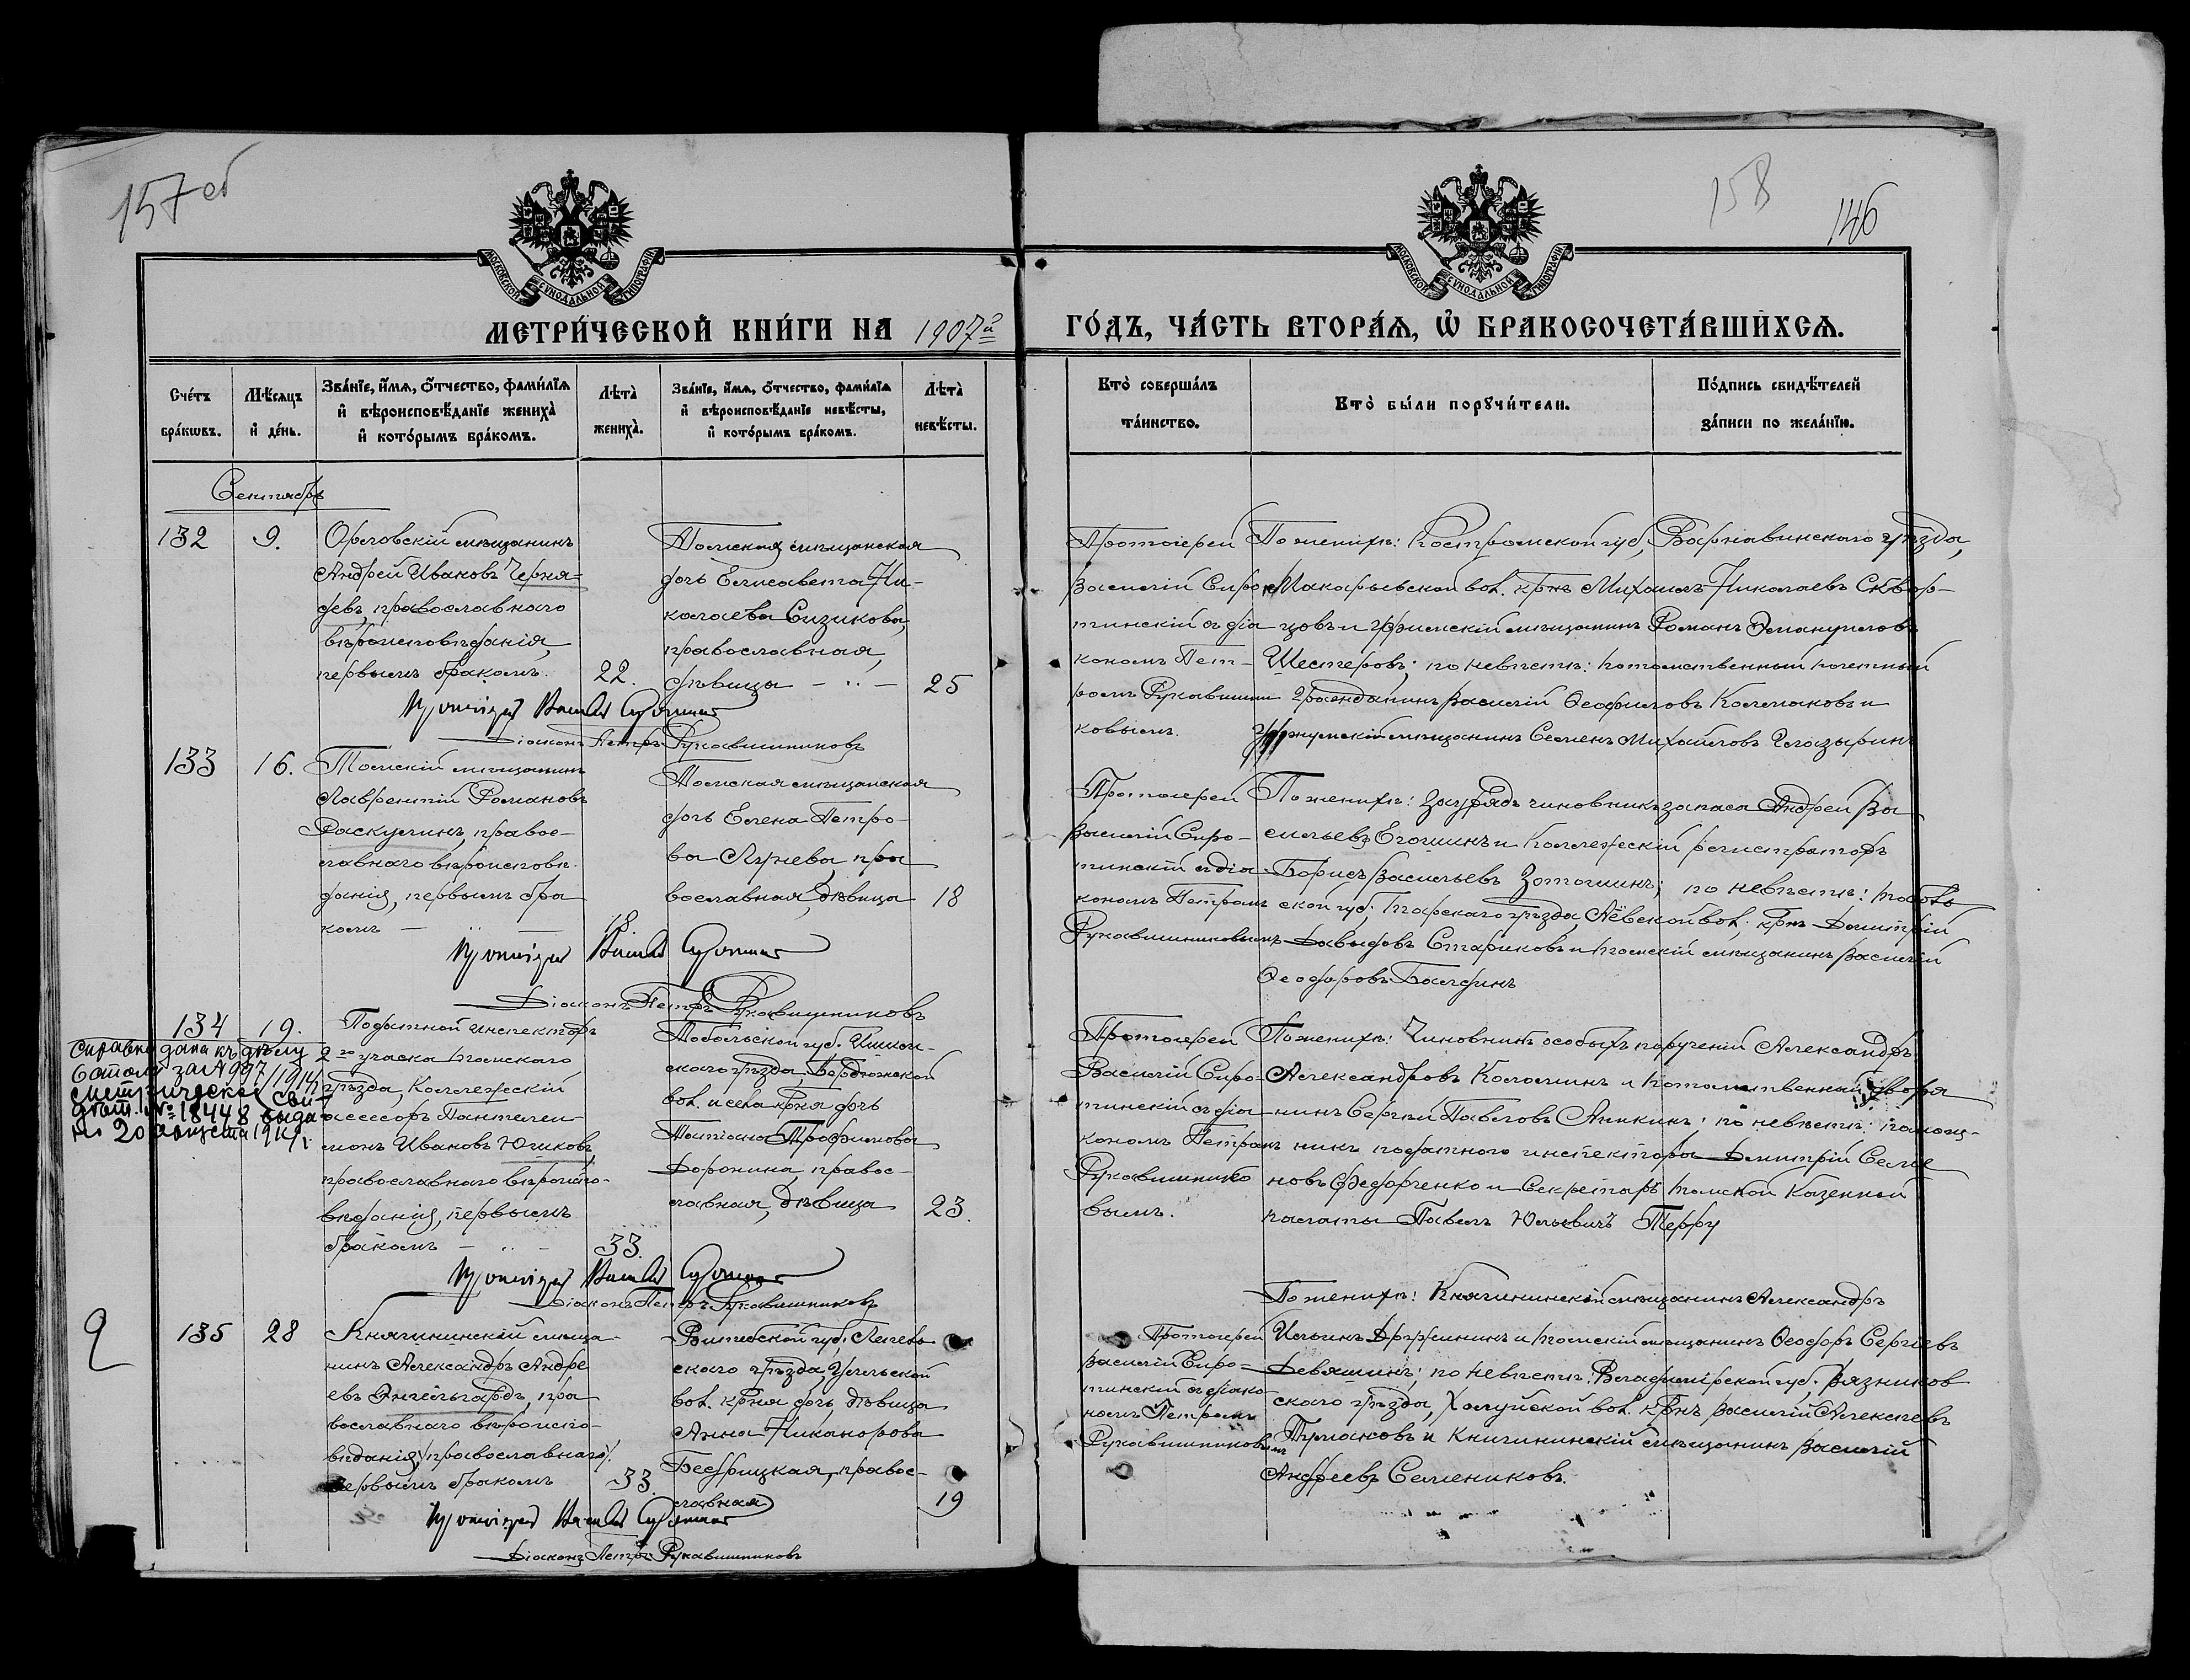 157 об
158
146
МОСКОВСКОЙ СѴНОДАЛЬНОЙ ТИПОГРАФІИ
МОСКОВСКОЙ СѴНОДАЛЬНОЙ ТИПОГРАФІИ
МЕТРИ́ЧЕСКОЙ КНИ́ГИ НА 1907й
ГО́ДЪ, ЧА́СТЬ ВТОРА́Я, Ѡ҆ БРАКОСОЧЕТА́ВШИХСЯ.
Сче́тъ
бра́кѡвъ.
Мѣ́сяцъ
и҆ де́нь.
Зва́нїе, и҆́мя, ѻ҆́тчество, фами́лїя
и҆ вѣроисповѣ́данїе жениха̀
и҆ кото́рымъ бра́комъ.
Лѣ́та̀
жениха̀.
Зва́нїе, и҆́мя, ѻ҆́тчество, фами́лїя
и҆ вѣроисповѣ́данїе невѣ́сты,
и҆ кото́рымъ бра́комъ.
Лѣ́та̀
невѣ́сты.
Кто̀ соверша́лъ
та́инство.
Кто̀ бы́ли порꙋчи́тели.
По́дпись свидѣ́телей
за́писи по жела́нїю.
Сентябрь
132
9.
Орловскій мѣщанинъ
Андрей Ивановъ Черня-
девъ, православнаго
вѣроисповѣданія,
первымъ бракомъ.
22.
Томская мѣщанская
дочь Елисавета Ни-
колаева Сизикова,
православная,
дѣвица – ·· –
25
Протоіерей
Василій Сиро-
тинскій съ діа
кономъ Пет-
ромъ Рукавишни
ковымъ.
По женихѣ: Костромской губ, Варнавинскаго уѣзда,
Макарьевской вол. крнъ Михаилъ Николаевъ Сквор-
цовъ и Уфимскій мѣщанинъ Романъ Эмануиловъ
Шестеровъ; по невѣстѣ: потомственный почетный
гражданинъ Василій Феофиловъ Колмаковъ и
Уржумскій мѣщанинъ Семенъ Михайловъ Глазыринъ
Протоіерей Василій Сиротинскій
Діаконъ Петръ Рукавишниковъ
133
16.
Томскій мѣщанинъ
Лаврентій Романовъ
Раскулинъ, правос-
лавнаго вѣроисповѣ-
данія, первымъ бра
комъ – ·· –
18
Томская мѣщанская
дочь Елена Петро-
ва Лунева, пра
вославная, дѣвица
18
Протоіерей
Василій Сиро-
тинскій съ діа-
кономъ Петромъ
Рукавишниковымъ
По женихѣ: Заурядъ чиновникъ запаса Андрей Ва
сильевъ Егошинъ и Коллежскій регистраторъ
Борисъ Васильевъ Зотошинъ; по невѣстѣ: тоболь
ской губ. Тарскаго уѣзда, Аёвской вол. крнъ Дмитрій
Давыдовъ Стариковъ и томскій мѣщанинъ Василій
Феодоровъ Балдинъ
Протоіерей Василій Сиротинскій
Діаконъ Петръ Рукавишниковъ
134
19.
Справка дана къ дѣлу
Стола за № 997/1914
Метрическое Сви-
дѣт. № 18448 выда
но 20 августа 1914 г.
Податной инспекторъ
2го участка томскаго
уѣзда, Коллежскій
ассессоръ Пантелеи
монъ Ивановъ Юшковъ,
православнаго вѣроиспо-
вѣданія, первымъ
бракомъ – ·· –
33.
Тобольской губ. Ишим-
скаго уѣзда, Бердюжской
вол. и села крня дочь
Татіана Трофимова
Доронина, правос-
лавная, дѣвица
23.
Протоіерей
Василій Сиро-
тинскій съ діа
кономъ Петромъ
Рукавишнико
вымъ.
По женихѣ: Чиновникъ особыхъ порученій Александръ
Александровъ Коломинъ и потомственный дворя
нинъ Сергѣй Павловъ Аникинъ; по невѣстѣ: помощ-
никъ податного инспектора Дмитрій Семе
новъ Федорченко и Секретарь томской Казенной
палаты Павелъ Юльевичъ Перру
Протоіерей Василій Сиротинскій
Діаконъ Петръ Рукавишниковъ
135
28
Княгининскій мѣща-
нинъ Александръ Андре
евъ Энгельгардъ, пра
вославнаго вѣроиспо-
вѣданія /православнаго/.
первымъ бракомъ
33.
Витебской губ, Лепель
скаго уѣзда, Ульской
вол. крня дочь, дѣвица
Анна Никанорова
Бедрицкая, правос-
лавная
19
Протоіерей
Василій Сиро-
тинскій съ діако
номъ Петромъ
Рукавишниковымъ
По женихѣ: Княгининскій мѣщанинъ Александръ
Ильинъ Дружининъ и томскій мѣщанинъ Феодоръ Сергіевъ
Девяшинъ; по невѣстѣ: Владимірской губ, Вязников
скаго уѣзда, Холуйской вол. крнъ Василій Алексѣевъ
Тумановъ и Княгининскій мѣщанинъ Василій
Андреевъ Семениковъ.
Протоіерей Василій Сиротинскій
Діаконъ Петръ Рукавишниковъ